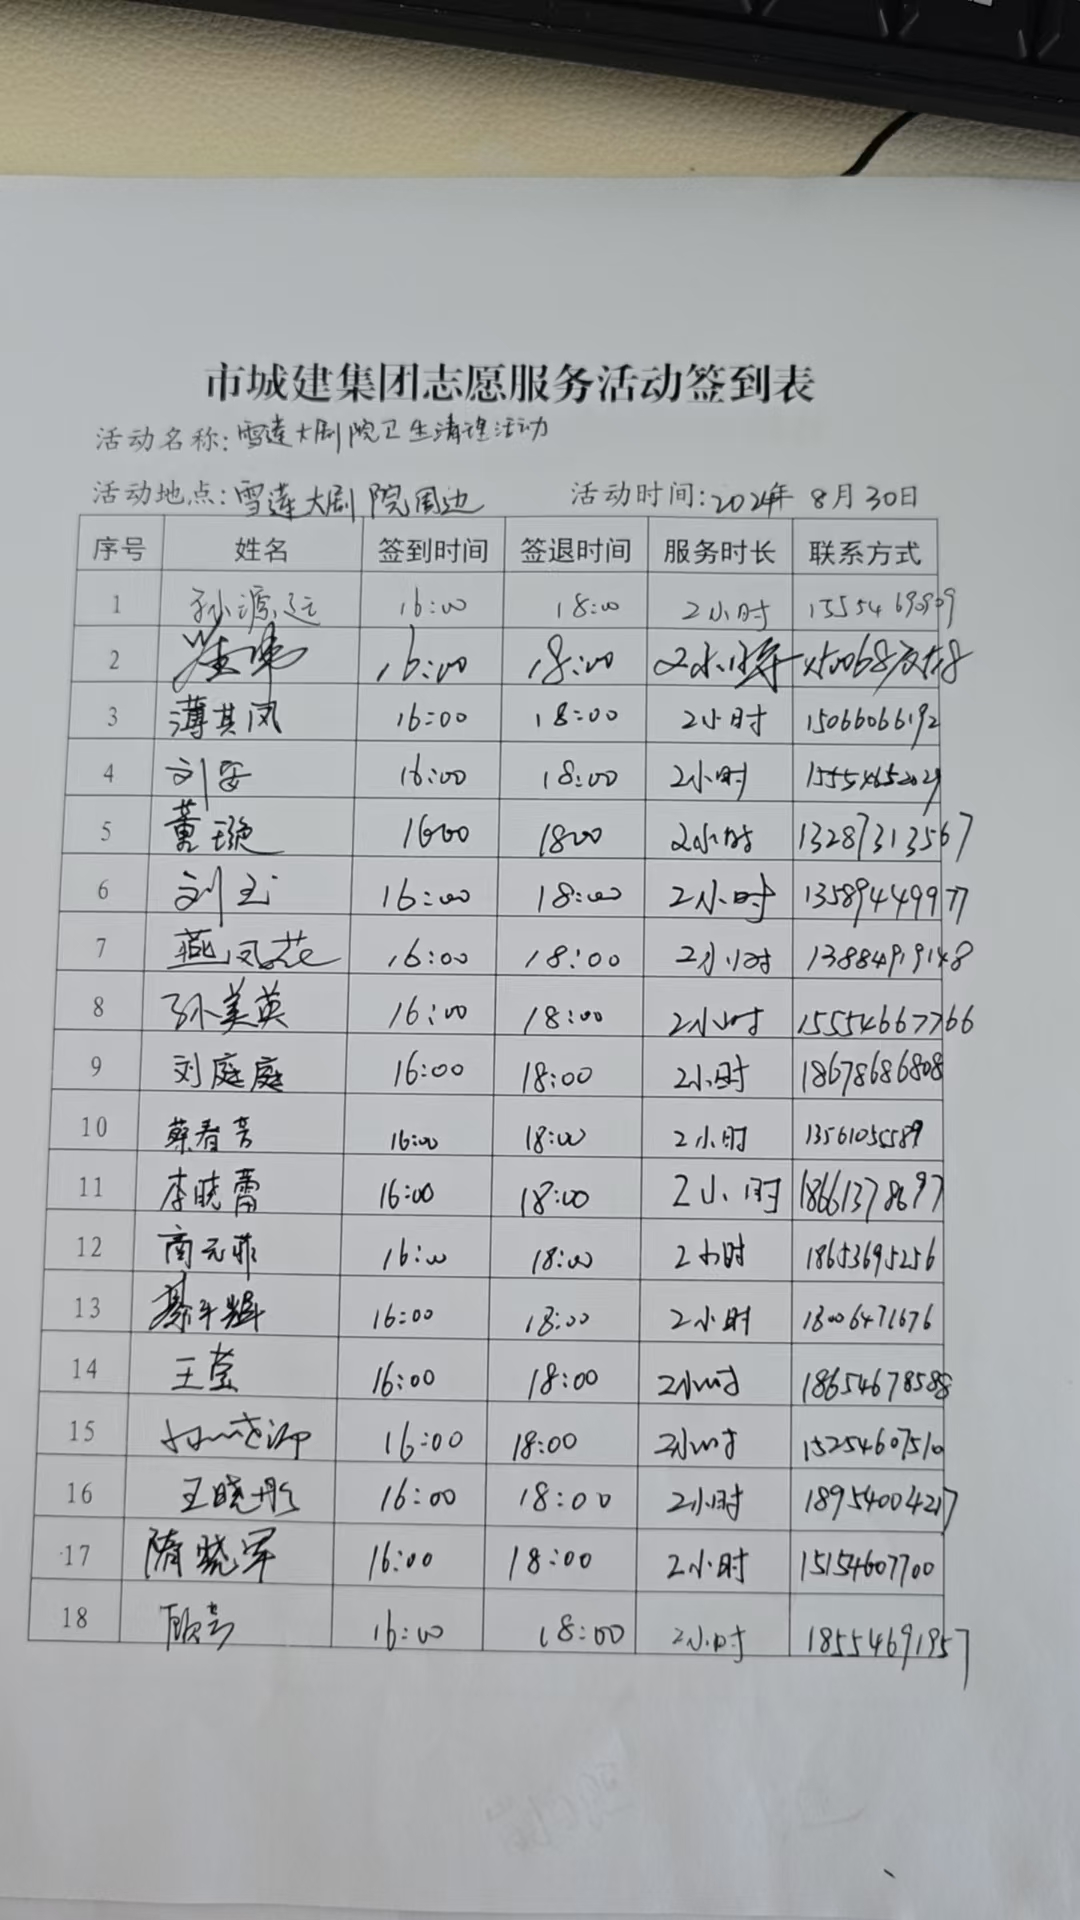 市城建集团志愿服务活动签到表
活动名称:雪莲大剧院卫生清理活动
活动地点:雪莲大剧院周边 活动时间:2024年 8月30日
序号 姓名 签到时间 签退时间 服务时长 联系方式
1 孙源远 16:00 18:00 2小时
2 16:00 18:00 2小时
3 薄其凤 16:00 18:00 2小时 15066066192
4 刘安 16:00 18:00 2小时 15554652029
5 董璇 16:00 1800 2小时 13287313567
6 刘玉 16:00 18:00 2小时 13589449977
7 燕凤花 16:00 18:00 2小时 13884919148
8 孙美英 16:00 18:00 2小时 15554667766
9 刘庭庭 16:00 18:00 2小时 18678686808
10 蔡春芳 16:00 18:00 2小时 13561055589
11 李晓蕾 16:00 18:00 2小时 18661378697
12 商元菲 16:00 18:00 2小时 18653695256
13 16:00 18:00 2小时 18006471676
14 王莹 16:00 18:00 2小时 18654678588
15 16:00 18:00 2小时 15254607510
16 王晓彤 16:00 18:00 2小时 18954004217
17 隋晓军 16:00 18:00 2小时 15154607700
18 16:00 18:00 2小时 18554691957